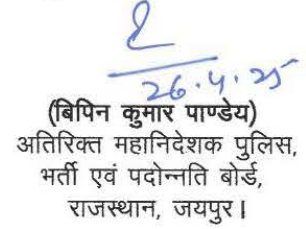 26.4.25
(बिपिन कुमार पाण्डेय)
अतिरिक्त महानिदेशक पुलिस,
भर्ती एवं पदोन्नति बोर्ड,
राजस्थान, जयपुर।